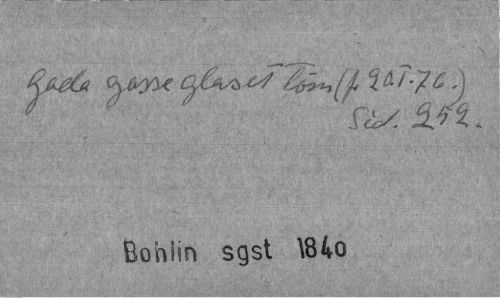 gada gasseglaset töm (f. 20.I.76.)
Sid. 252.
Bohlin sgst 1840